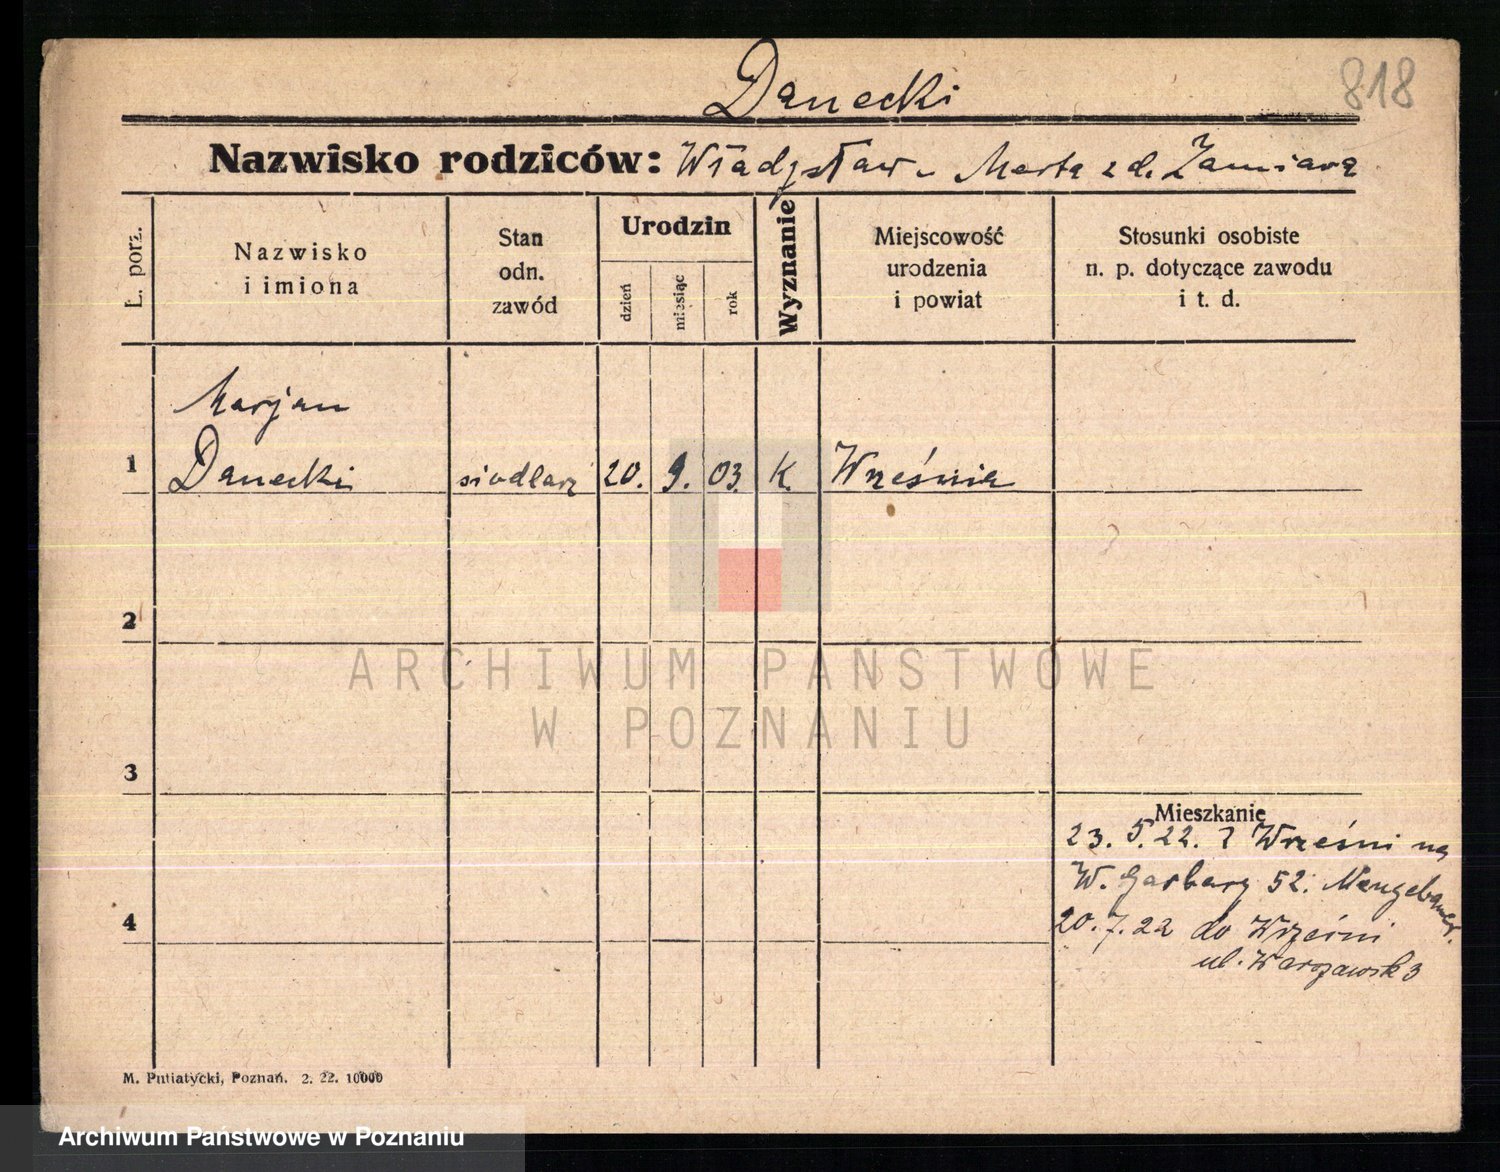 Danecki
818
Nazwisko rodziców: Władysław Marta z d.
L. porz.
Nazwisko
i imiona
Stan
odn.
zawód
Urodzin
dzień
miesiąc
rok
Wyznanie
Miejscowość
urodzenia
i powiat
Stosunki osobiste
n. p. dotyczące zawodu
i t. d.
Marjan
1 Danecki siodlarz 20. 9. 03. K. Września
2
3
Mieszkanie
23. 5. 22. z Wrześni na
W. Garbary 52.
4
20. 7. 22 do Wrześni
ul. Warszawsk 3
M. Putiatycki, Poznań. 2. 22. 10000
ARCHIWUM PAŃSTWOWE
W POZNANIU
Archiwum Państwowe w Poznaniu